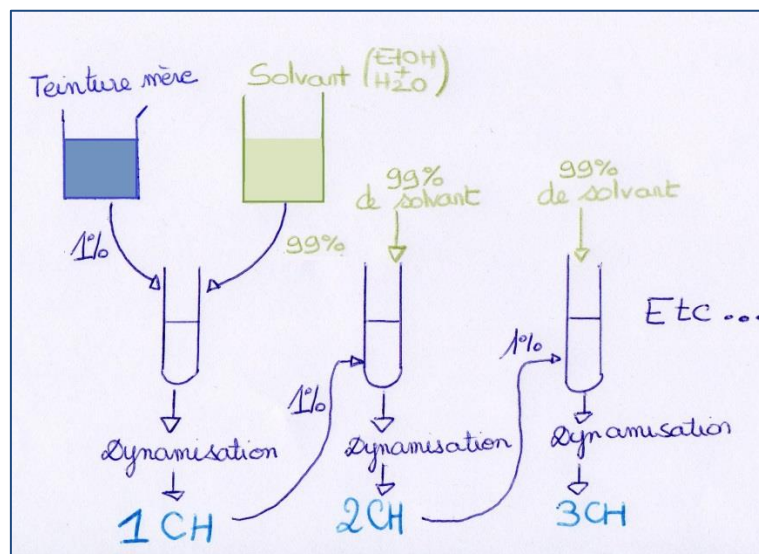 Teinture mère
Solvant (EtOH
+
H2O)
1%
99%
99%
de solvant
99%
de solvant
1%
1%
Etc ...
Dynamisation
Dynamisation
Dynamisation
1 CH
2 CH
3 CH